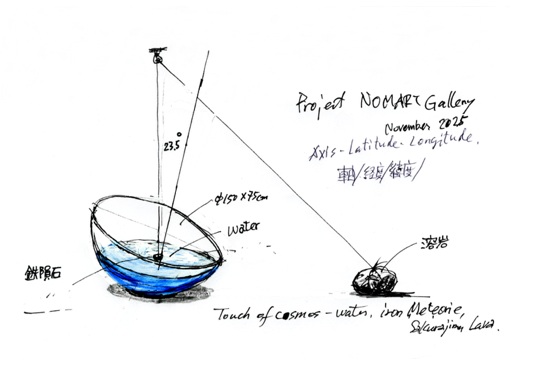 Project NOMART Gallery
November 2025
Axis-Latitude-Longitude.
軸/経度/緯度/
23.5°
φ150×75cm
water
鉄隕石
溶岩
Touch of cosmos-water, iron Meteorie,
Sakurajima Lava.